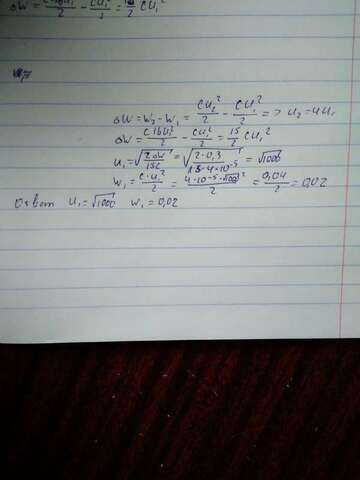 ΔW = C16U₁²/2 - CU₁²/2 = 15/2 CU₁²
ΔW = W₂ - W₁ = CU₂²/2 - CU₁²/2 => U₂ = 4U₁
ΔW = C16U₁²/2 - CU₁²/2 = 15/2 CU₁²
U₁ = √(2ΔW/15C) = √(2·0,3/15·4·10⁻⁵) = √1000
W₁ = C·U₁²/2 = 4·10⁻⁵·√1000²/2 = 0,04/2 = 0,02
Ответ U₁ = √1000 W₁ = 0,02